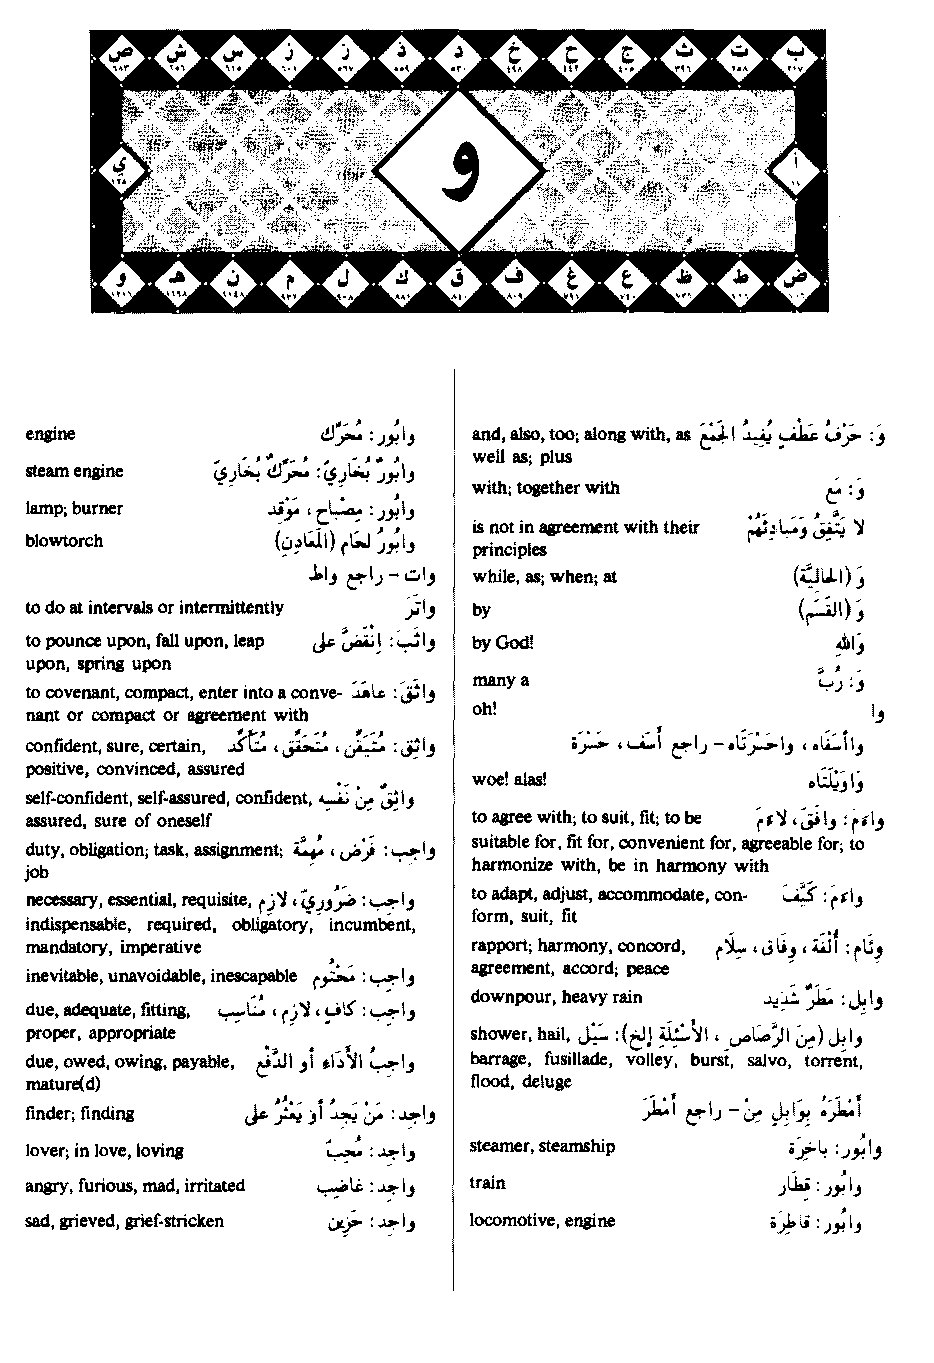 ب ت ث ج ح خ د ذ ر ز س ش ص
أ
و
ي
ض ط ظ ع غ ف ق ك ل م ن هـ و
وَ: حَرْفُ عَطْفٍ يُفِيدُ الجَمْعَ and, also, too; along with, as
well as; plus
وَ: مَع with; together with
لا يَتَّفِقُ وَمَبادِئَهُمْ is not in agreement with their
principles
وَ (الحاليَّة) while, as; when; at
وَ (القَسَم) by
وَاللهِ by God!
وَ: رُبَّ many a
وا oh!
واأسَفاه، واحَسْرَتاه – راجع أسَف، حَسْرَة
وَاوَيْلَتَاه woe! alas!
واءَمَ: وافَقَ، لاءَمَ to agree with; to suit, fit; to be
suitable for, fit for, convenient for, agreeable for; to
harmonize with, be in harmony with
واءَمَ: كَيَّفَ to adapt, adjust, accommodate, con-
form, suit, fit
وِئَام: أُلْفَة، وِفَاق، سِلَام rapport; harmony, concord,
agreement, accord; peace
وابِل: مَطَرٌ شَدِيد downpour, heavy rain
وابِل (مِنَ الرَّصَاصِ، الأسْئِلَةِ إلخ): سَيْل shower, hail,
barrage, fusillade, volley, burst, salvo, torrent,
flood, deluge
أمْطَرَهُ بِوَابِلٍ مِنْ – راجع أمْطَرَ
وابُور: باخِرَة steamer, steamship
وابُور: قِطَار train
وابُور: قاطِرَة locomotive, engine
وابُور: مُحَرِّك engine
وابُورٌ بُخَارِيّ: مُحَرِّكٌ بُخَارِيّ steam engine
وابُور: مِصْبَاح، مَوْقِد lamp; burner
وابُورُ لحَام (المَعَادِنِ) blowtorch
وات – راجع واط
واتَرَ to do at intervals or intermittently
واثَبَ: اِنْقَضَّ على to pounce upon, fall upon, leap
upon, spring upon
واثَقَ: عاهَدَ to covenant, compact, enter into a conve-
nant or compact or agreement with
واثِق: مُتَيَقِّن، مُتَحَقِّق، مُتَأَكِّد confident, sure, certain,
positive, convinced, assured
واثِقٌ مِنْ نَفْسِهِ self-confident, self-assured, confident,
assured, sure of oneself
واجِب: فَرْض، مُهِمَّة duty, obligation; task, assignment;
job
واجِب: ضَرُورِيّ، لازِم necessary, essential, requisite,
indispensable, required, obligatory, incumbent,
mandatory, imperative
واجِب: مَحْتُوم inevitable, unavoidable, inescapable
واجِب: كافٍ، لازِم، مُنَاسِب due, adequate, fitting,
proper, appropriate
واجِبُ الأدَاءِ أو الدَّفْعِ due, owed, owing, payable,
mature(d)
واجِد: مَنْ يَجِدُ أو يَعْثُرُ على finder; finding
واجِد: مُحِبّ lover; in love, loving
واجِد: غاضِب angry, furious, mad, irritated
واجِد: حَزِين sad, grieved, grief-stricken